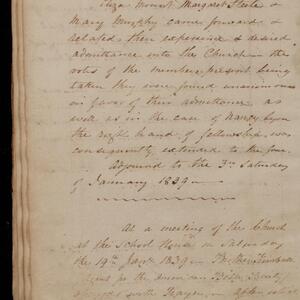 Eliza Margaret Steele &
Mary Murphy came forward &
related their experience & desired
admittance into the Church – the
votes of the members present being
taken they were found unanimous
in favor of their admittance as
well as in the case of Nancy
the right hand of fellowship was
consequently extended to the four.
Adjourned to the 3rd Saturday
of January 1839 –
At a meeting of the Church
at the School House on Saturday
the 19th Jany 1839 – Brother
Agent for the American Bible Society
with Prayer – After which